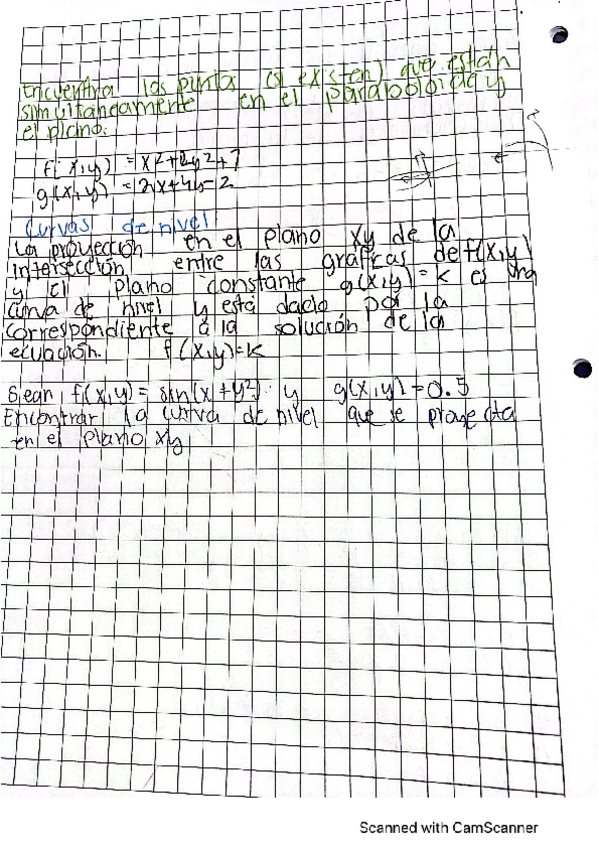 Encuentra los puntos (si existen) que están
simultáneamente en el paraboloide y
el plano.
f(x,y) = x²+2y²+7
g(x,y) = 2x+4y-2
Curvas de nivel
La proyección en el plano xy de la
intersección entre las gráficas de f(x,y)
y el plano constante g(x,y) = k es una
curva de nivel y está dado por la
correspondiente a la solución de la
ecuación. f(x,y)=k
Sean f(x,y) = sin(x+y²) y g(x,y)=0.5
Encontrar la curva de nivel que se proyecta
en el plano xy
Scanned with CamScanner